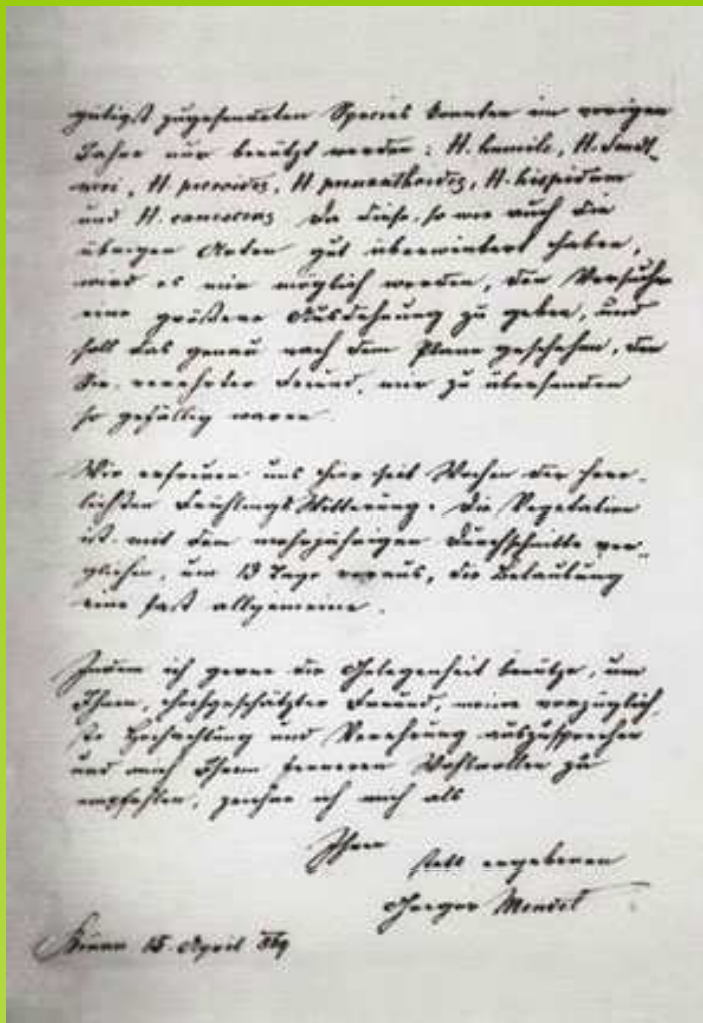 gütigst zugesendeten Species konnten im vorigen
Jahre nur benützt werden: H. humile, H.
H. picroides, H. prenanthoides, H. hispidum
und H. canescens. Da diese, so wie auch die
übrigen Arten gut überwintert haben,
wird es mir möglich werden, den Versuchen
eine größere Ausdehnung zu geben, und
soll das genau nach dem Plane geschehen, den
Sie, verehrter Freund, mir zu übersenden
so gefällig waren.
Wir erfreuen uns hier seit Wochen der herr-
lichsten Frühlings Witterung. Die Vegetation
ist mit dem mehrjährigen Durchschnitte ver-
glichen, um 13 Tage voraus, die Belaubung
eine fast allgemeine.
Indem ich gerne die Gelegenheit benütze, um
Ihnen, hochgeschätzter Freund, meine vorzüglich-
ste Hochachtung und Verehrung auszusprechen
und mich Ihrem ferneren Wohlwollen zu
empfehlen, zeichne ich mich als
Ihren
stets ergebenen
Gregor Mendel
Brünn 15. April 869